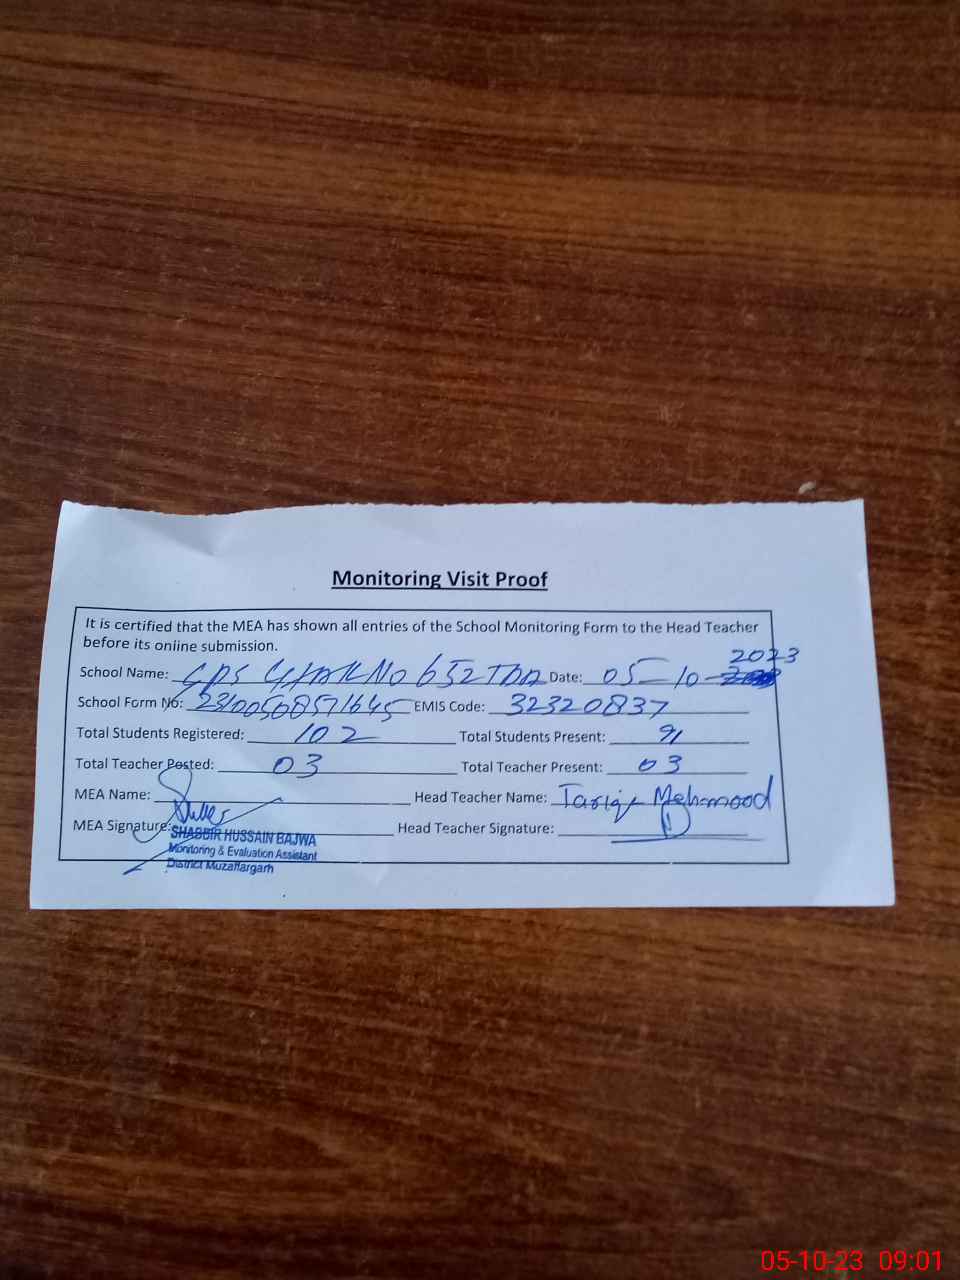 Monitoring Visit Proof
It is certified that the MEA has shown all entries of the School Monitoring Form to the Head Teacher
before its online submission.
School Name: GPS CHAK NO 652 TDA Date: 05-10-2023
School Form No: 23100508571645 EMIS Code: 32320837
Total Students Registered: 102 Total Students Present: 91
Total Teacher Posted: 03 Total Teacher Present: 03
MEA Name: Head Teacher Name: Tariq Mehmood
MEA Signature: Head Teacher Signature:
SHABBIR HUSSAIN BAJWA
Monitoring & Evaluation Assistant
District Muzaffargarh
05-10-23 09:01